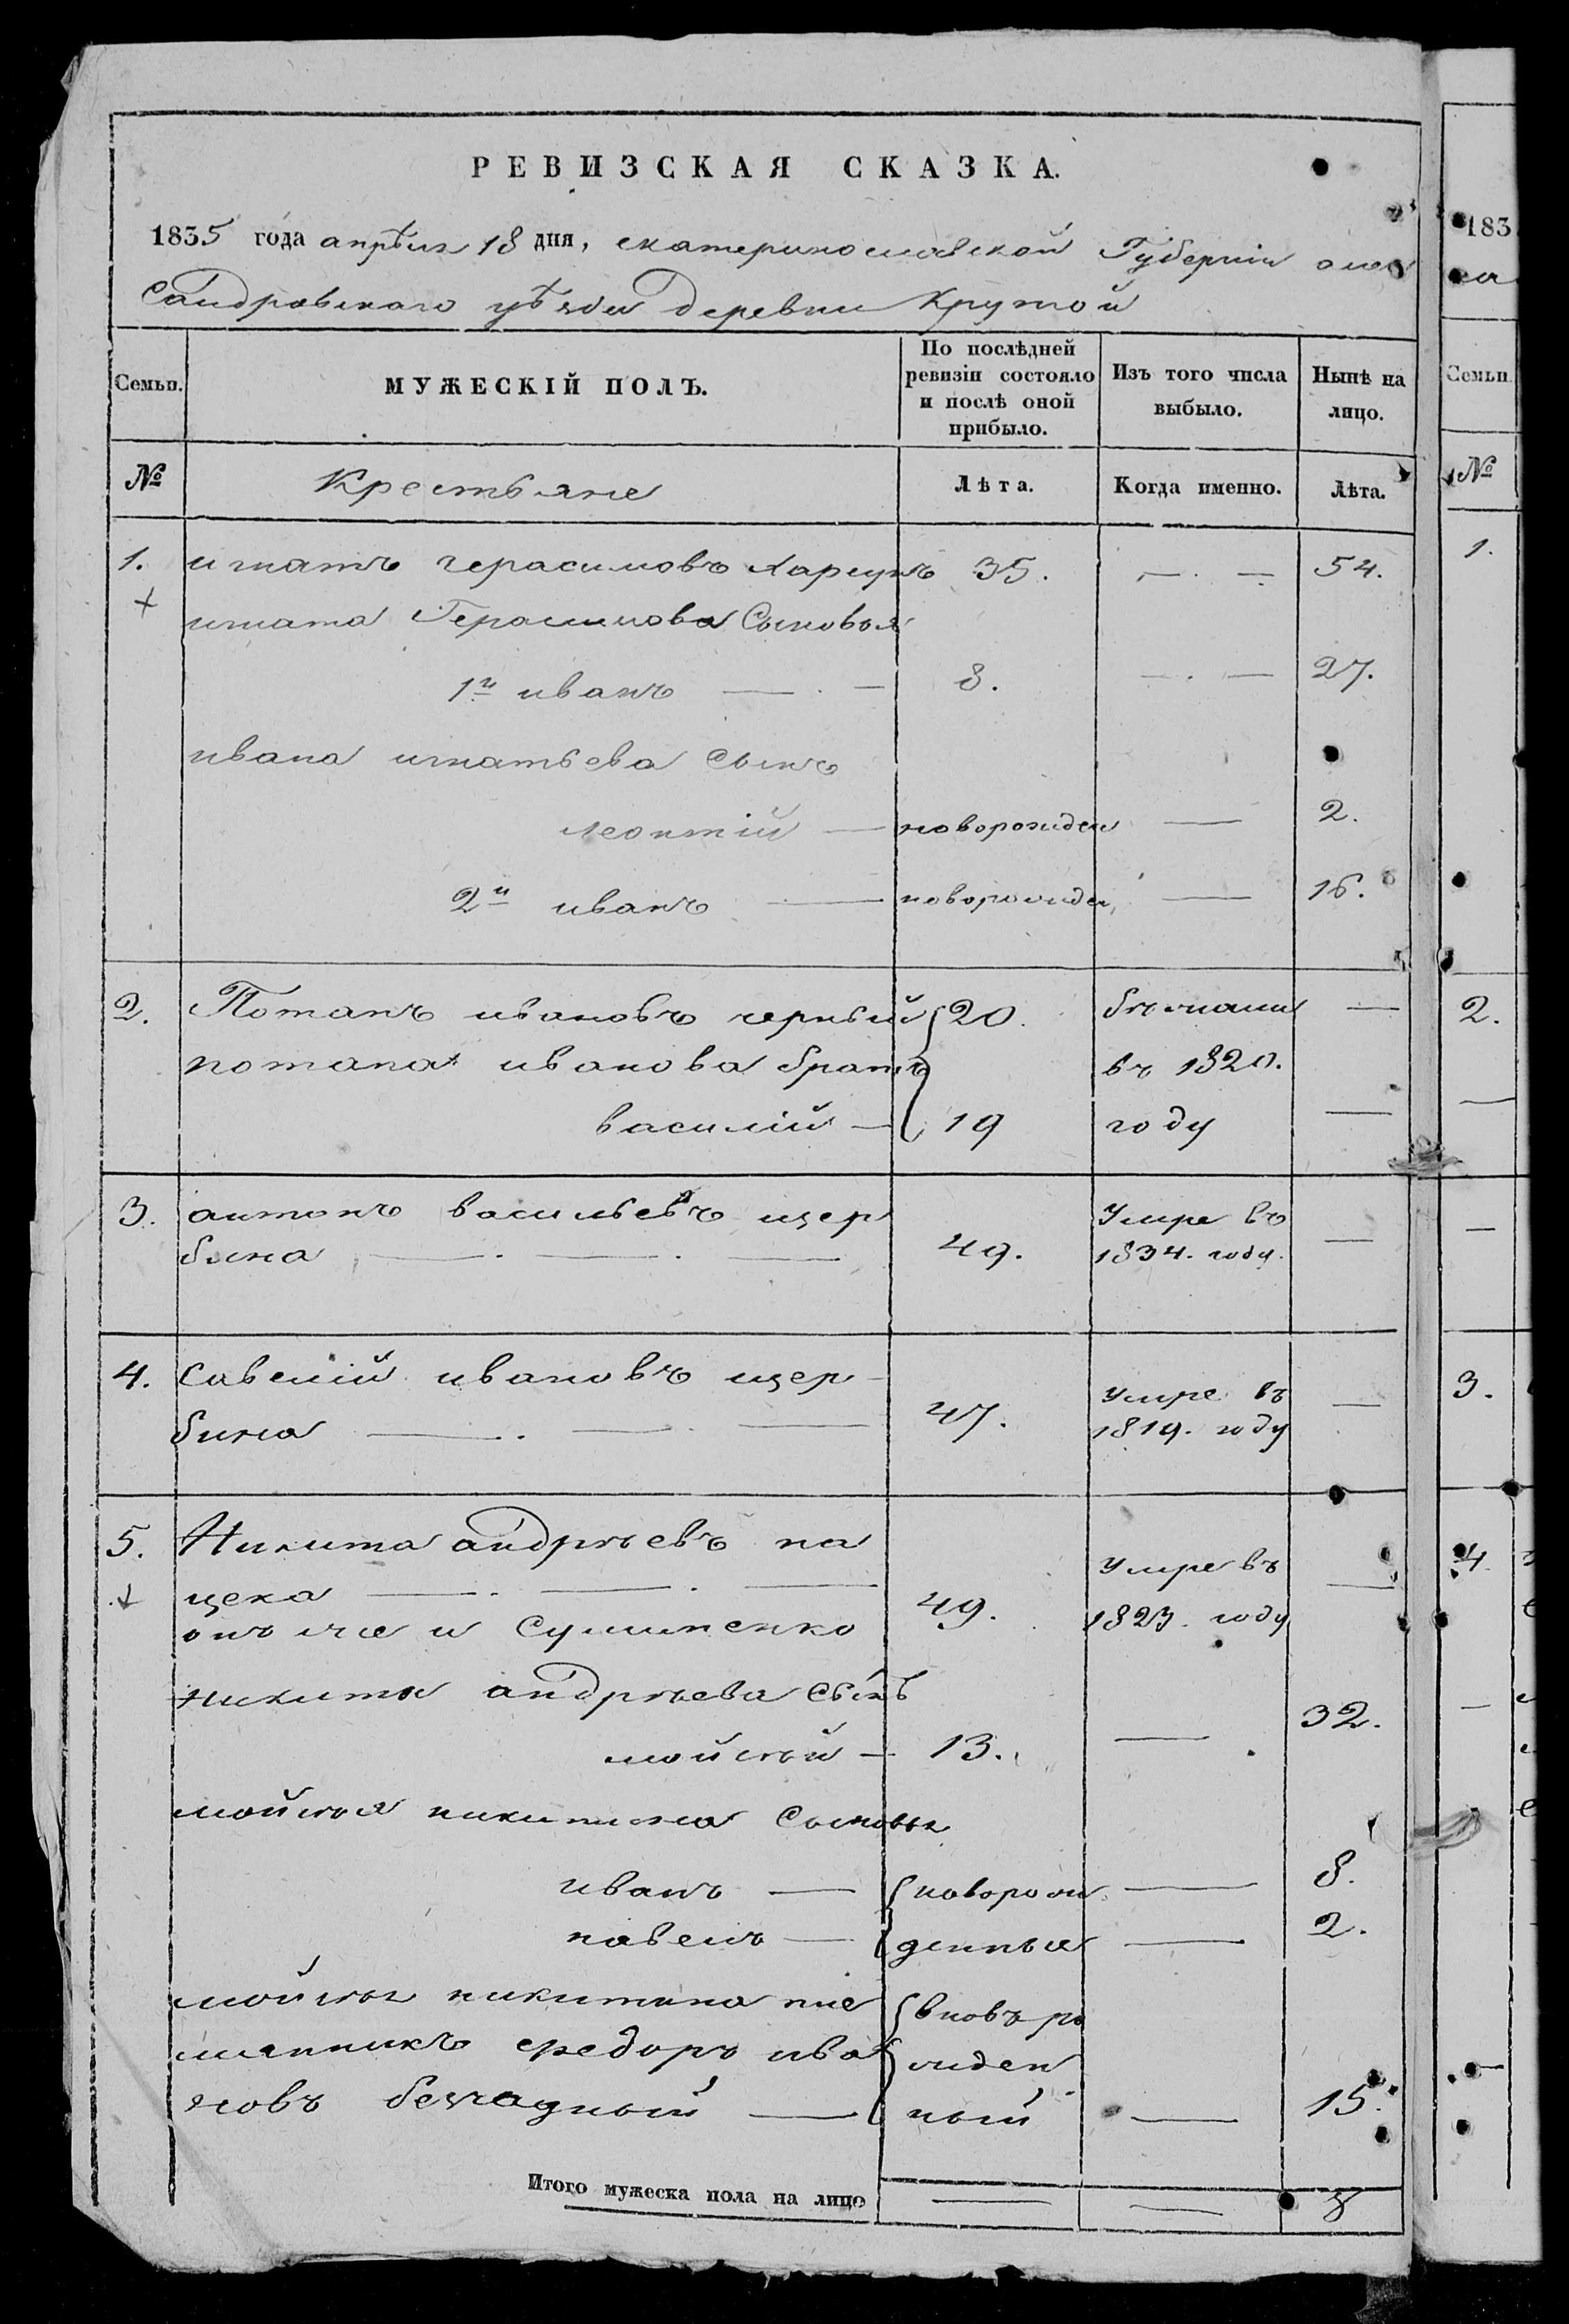 РЕВИЗСКАЯ СКАЗКА.
1835 года апрѣля 18 дня, екатеринославской Губерніи алек
сандровскаго уѣзда деревни Крутой
Семьи. МУЖЕСКІЙ ПОЛЪ. По послѣдней ревизіи состояло и послѣ оной прибыло. Изъ того числа выбыло. Нынѣ на лицо.
№ Крестьяне Лѣта. Когда именно. Лѣта.
1. игнатъ герасимовъ 35. 54.
игната Герасимова Сыновья
1й иванъ 8. 27.
ивана игнатьева сынъ
леонтій новорожден 2.
2й иванъ новорожден 16.
2. Потапъ ивановъ черный 20. бѣжали
потапа иванова братъ въ 1820.
василій 19 году
3. антонъ васильевъ щер Умре въ
бина 49. 1834. году.
4. Савелій ивановъ щер- умре въ
бина 47. 1819. году
5. Никита андрѣевъ па умре въ
цека 49. 1823. году
онъ же и
никиты андрѣева сынъ
мойсей 13. 32.
мойсея никитина сыновья
иванъ новорож 8.
павелъ денные 2.
мойсея никитина пле вновь ро
мянникъ федоръ ива жден
новъ ный 15.
Итого мужеска пола на лицо 8
183
Семьи.
№
1.
2.
3.
4.